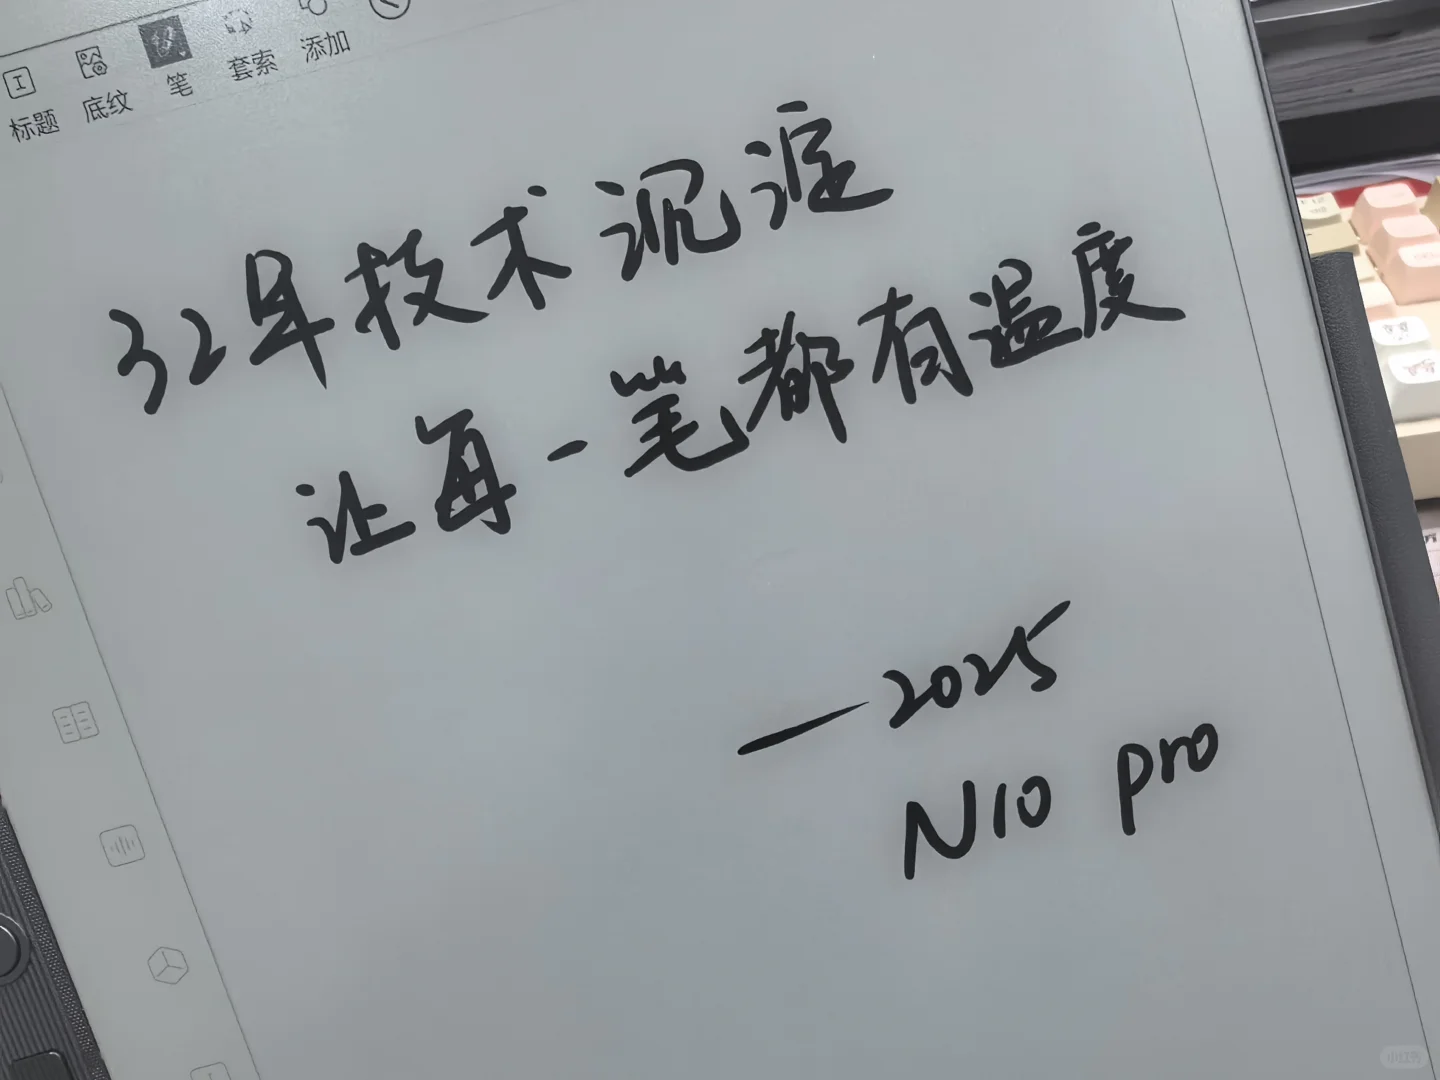 标题 底纹 笔 套索 添加
32年技术沉淀
让每一笔都有温度
—2025
N10 pro
小红书